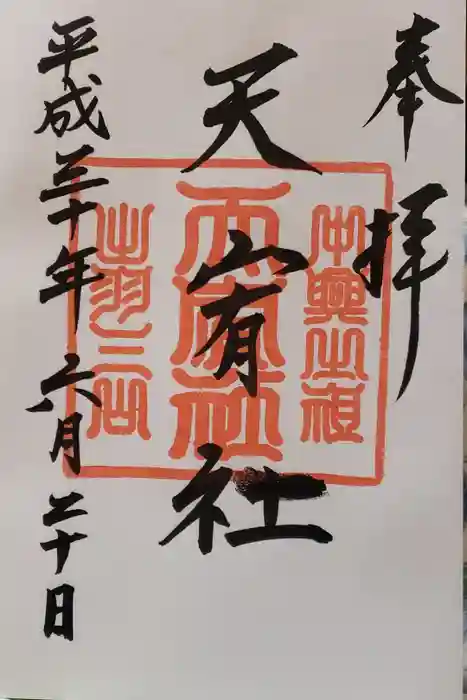 奉拝
天宥社
平成三十年六月二十日
中興之祖
天宥社
出羽三山